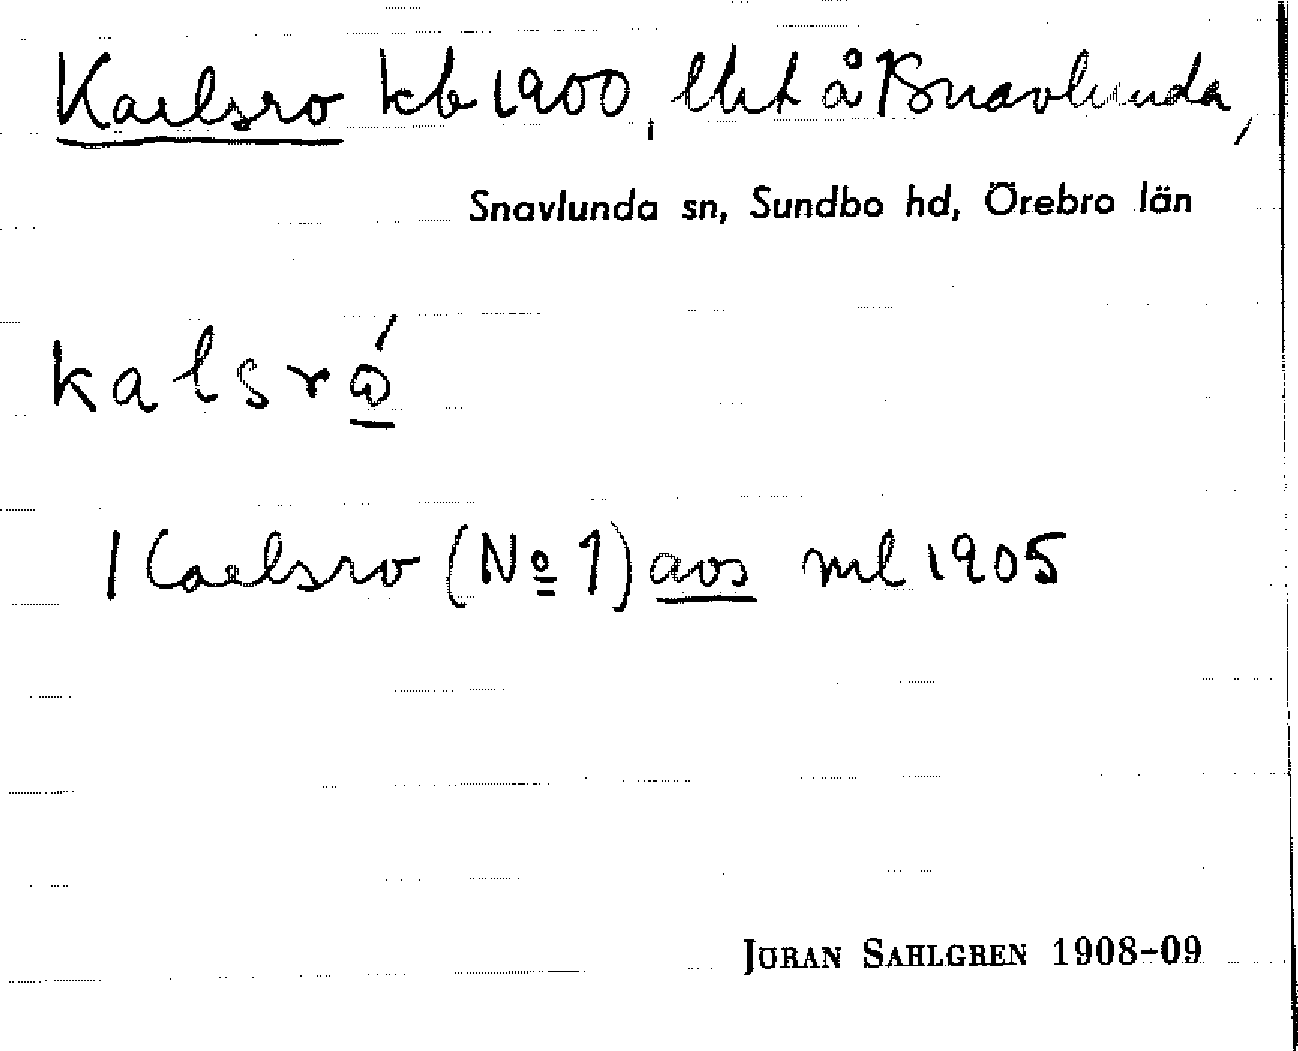 Karlsro kb 1900, lht å Snavlunda,
Snavlunda sn, Sundbo hd, Örebro län
kalsrώ
Karlsro (No 1) avs ml 1905
JÖRAN SAHLGREN 1908-09